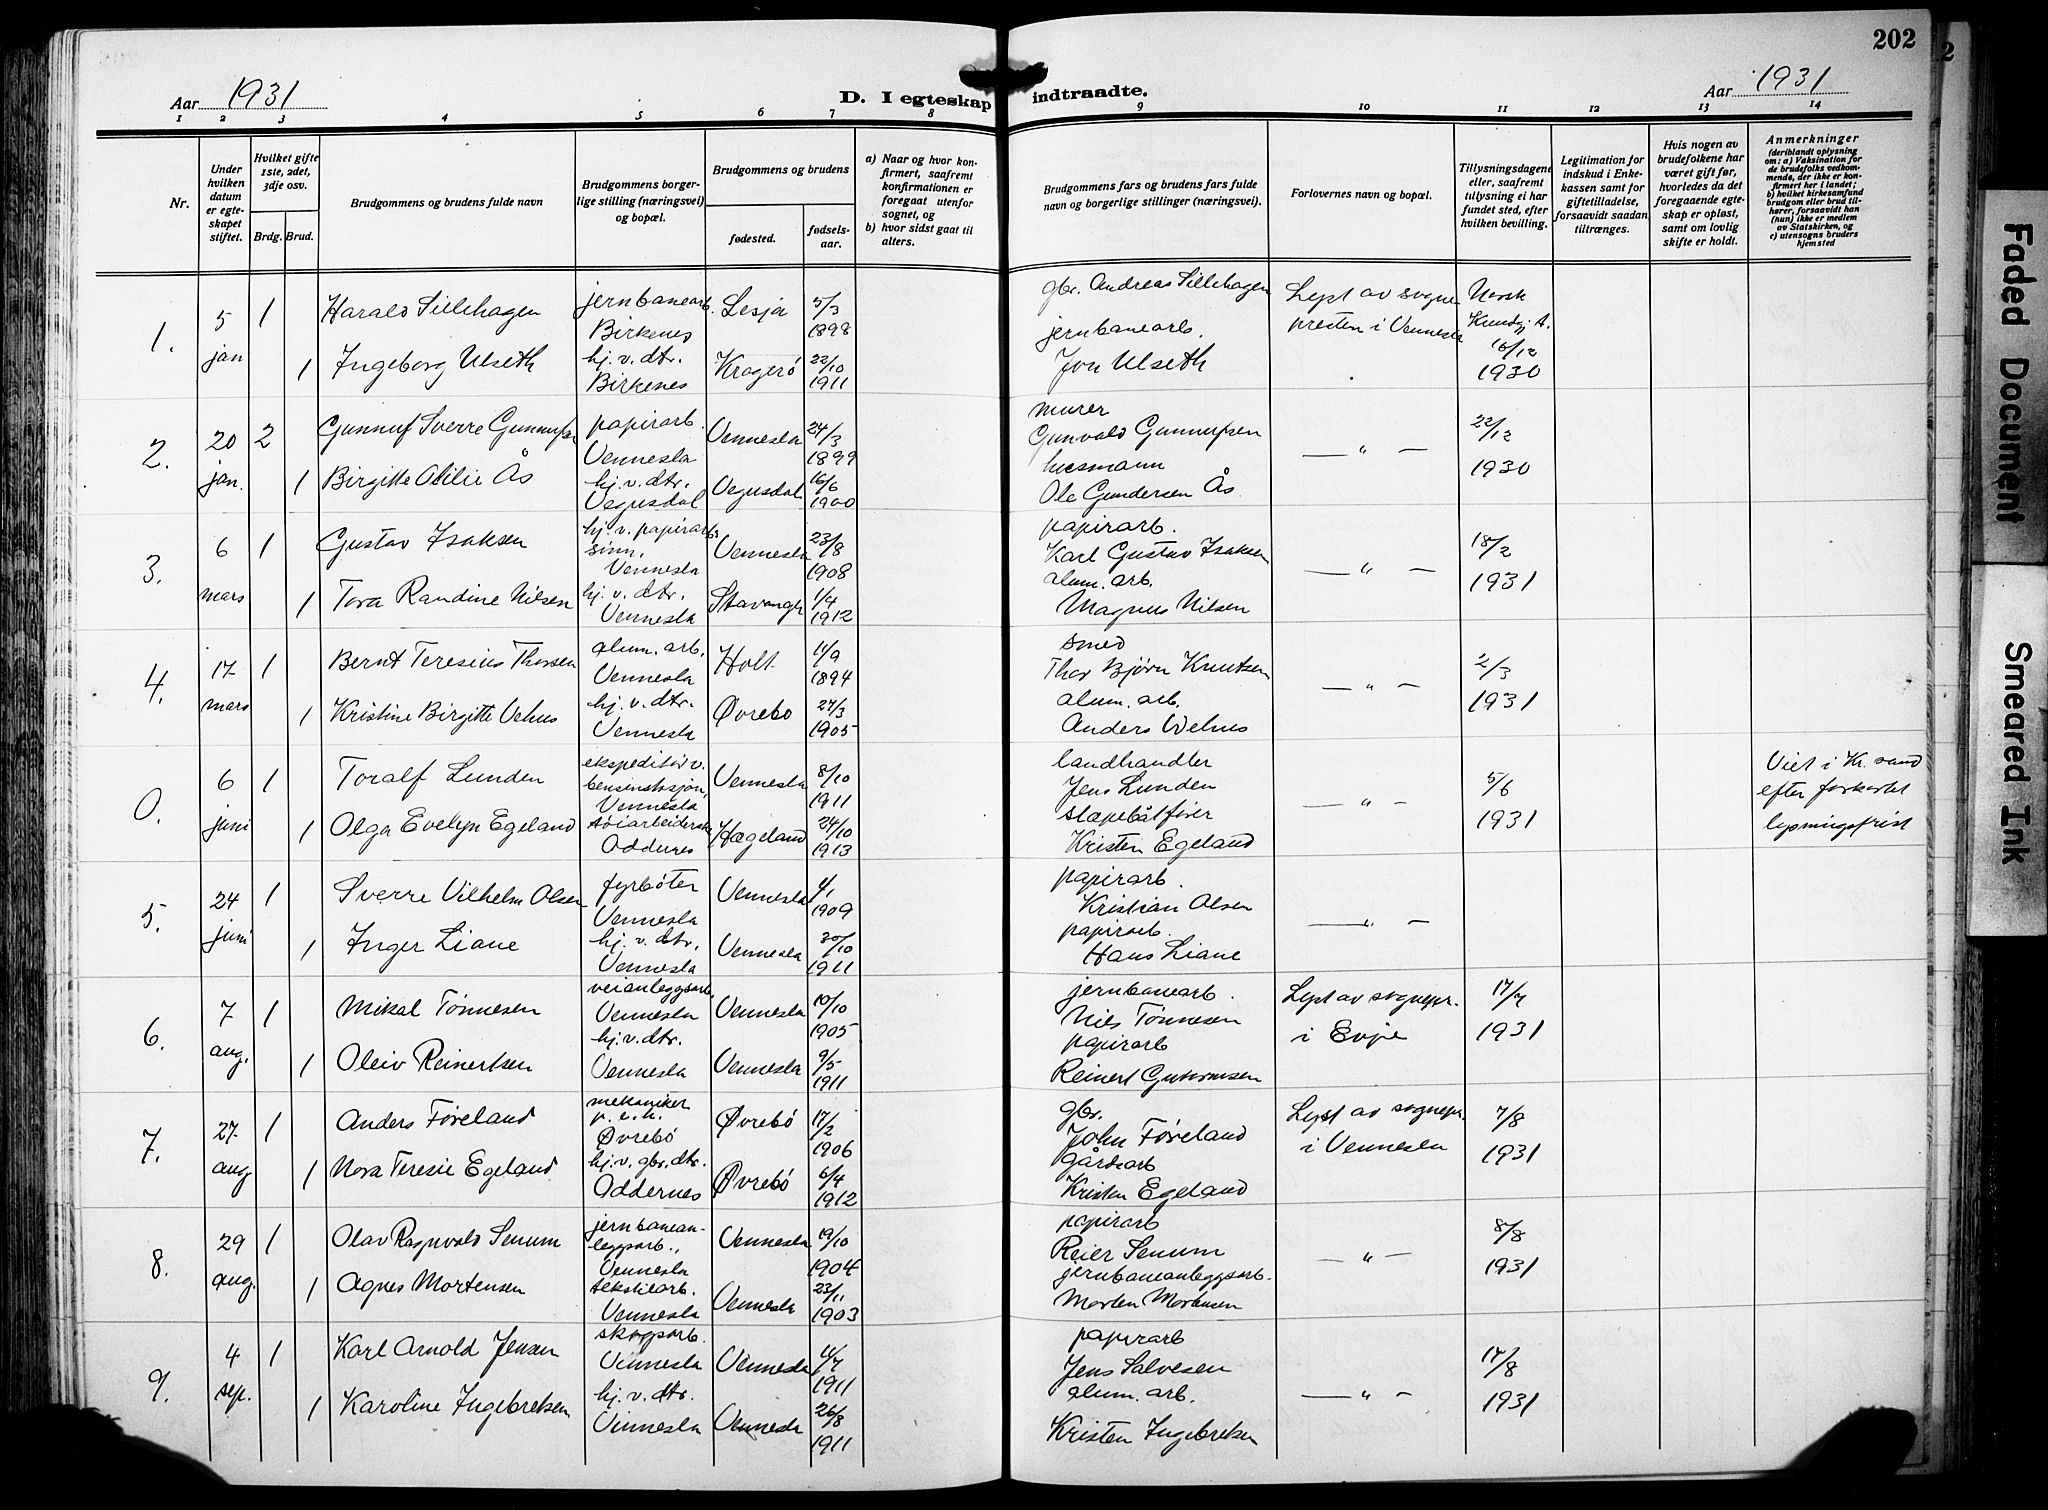 202
Aar 1931
D. I egteskap indtraadte.
Aar 1931
1 2 3 4 5 6 7 8 9 10 11 12 13 14
Nr.
Under hvilken datum er egteskapet stiftet.
Hvilket gifte 1ste, 2det, 3dje osv.
Brdg. Brud.
Brudgommens og brudens fulde navn
Brudgommens borgerlige stilling (næringsvei) og bopæl.
Brudgommens og brudens
fødested.
fødselsaar.
a) Naar og hvor konfirmert, saafremt konfirmationen er foregaat utenfor sognet, og
b) hvor sidst gaat til alters.
Brudgommens fars og brudens fars fulde navn og borgerlige stillinger (næringsvei).
Forlovernes navn og bopæl.
Tillysningsdagene eller, saafremt tillysning ei har fundet sted, efter hvilken bevilling.
Legitimation for indskud i Enkekassen samt for giftetilladelse, forsaavidt saadan tiltrænges.
Hvis nogen av brudefolkene har været gift før, hvorledes da det foregaaende egteskap er opløst, samt om lovlig skifte er holdt.
Anmerkninger
(deriblandt oplysning om: a) Vaksination for de brudefolks vedkommende, der ikke er konfirmert her i landet; b) hvilket kirkesamfund brudgom eller brud tilhører, forsaavidt han (hun) ikke er medlem av Statskirken, og c) utensogns bruders hjemsted
1. 5 jan 1 Harald Sillehagen jernbanearb. Birkenes Lesja 5/3 1898 gbr. Andreas Sillehagen Lyst av sogne presten i Vennesla Norsk Kundgj. A. 16/12 1930
1 Ingeborg Ulseth hj. v. dtr. Birkenes Kragerö 22/10 1911 jernbanearb. Jon Ulseth
2. 20 jan. 2 Gunnuf Sverre Gunnufsen papirarb. Vennesla Vennesla 24/3 1899 murer Gunvald Gunnufsen — " — 22/12 1930
1 Birgitte Otilie Ås hj. v. dtr. Vegusdal Vegusdal 16/6 1900 husmann Ole Gundersen Ås
3. 6 mars 1 Gustav Isaksen hj. v. papirarb. sinn. Vennesla Vennesla 23/8 1908 papirarb. Karl Gustav Isaksen — " — 18/2 1931
1 Tora Randine Nilsen hj. v. dtr. Vennesla Stavanger 1/4 1912 alum. arb. Magnus Nilsen
4. 17 mars 1 Bernt Teresius Thorsen alum. arb. Vennesla Holt 11/9 1894 smed Thor Bjørn Knutsen — " — 2/3 1931
1 Kristine Birgitte Vehus hj. v. dtr. Vennesla Øvrebo 27/3 1905 alum. arb. Anders Wehus
0. 6 juni 1 Toralf Lunden ekspeditør v. bensinstasjon, Vennesla Vennesla 8/10 1911 landhandler Jens Lunden — " — 5/6 1931 Viet i Kr. sand efter forkortet lysningsfrist
1 Olga Evelyn Egeland tøiarbeiderske Oddernes Hægeland 24/10 1913 slæpebåtfører Kristen Egeland
5. 24 juni 1 Sverre Vilhelm Olsen fyrbøter Vennesla Vennesla 1909 papirarb. Kristian Olsen — " —
1 Inger Liane hj. v. dtr. Vennesla Vennesla 30/10 1911 papirarb. Hans Liane
6. 7 aug. 1 Mikal Tönnesen veianleggsarb. Vennesla Vennesla 10/10 1905 jernbanearb. Nils Tönnesen Lyst av sognepr. i Evje 17/7 1931
1 Oleiv Reinertsen hj. v. dtr. Vennesla Vennesla 9/5 1911 papirarb Reinert
7. 27 aug 1 Anders Föreland mekaniker Øvrebö Øvrebö 17/2 1906 gbr. John Föreland Lyst av sognepr. i Vennesla 7/8 1931
1 Nora Teresie Egeland hj. v. gbr. dtr. Oddernes Øvrebö 6/4 1912 gårdsarb Kristen Egeland
8. 29 aug. 1 Olav Ragnvald Senum jernbanean- leggsarb., Vennesla Vennesla 19/10 1904 papirarb Reier Senum — " — 8/8 1931
1 Agnes Mortensen tekstilarb. Vennesla Vennesla 23/11 1903 jernbaneanleggsarb. Morten Mortensen
9. 4 sep. 1 Karl Arnold Jensen skogsarb. Vennesla Vennesla 11/7 1911 papirarb Jens Salvesen — " — 17/8 1931
1 Karoline Ingebretsen hj. v. dtr. Vennesla Vennesla 26/8 1911 alum. arb. Kristen Ingebretsen
Faded Document
Smeared Ink
2